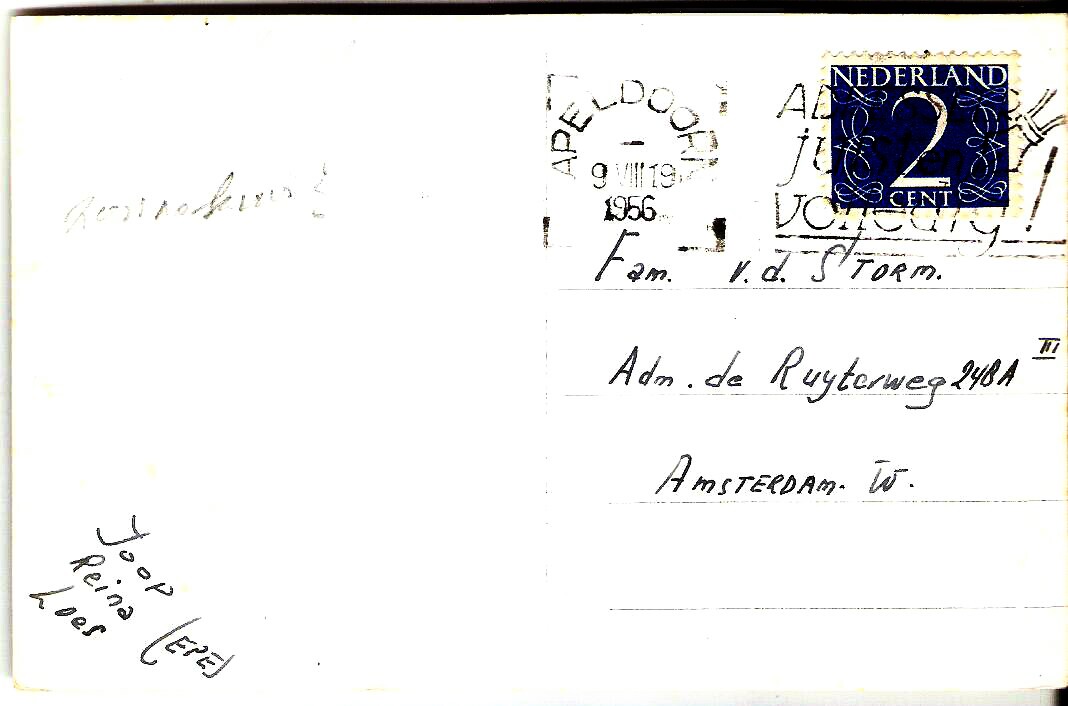 APELDOORN
9 VIII 19
1956
NEDERLAND
2
CENT
juist en
volledig!
Fam. v.d. STORM.
Adm. de Ruyterweg 248A III
AMSTERDAM. W.
Joop
Reina
Loes
(EPE)